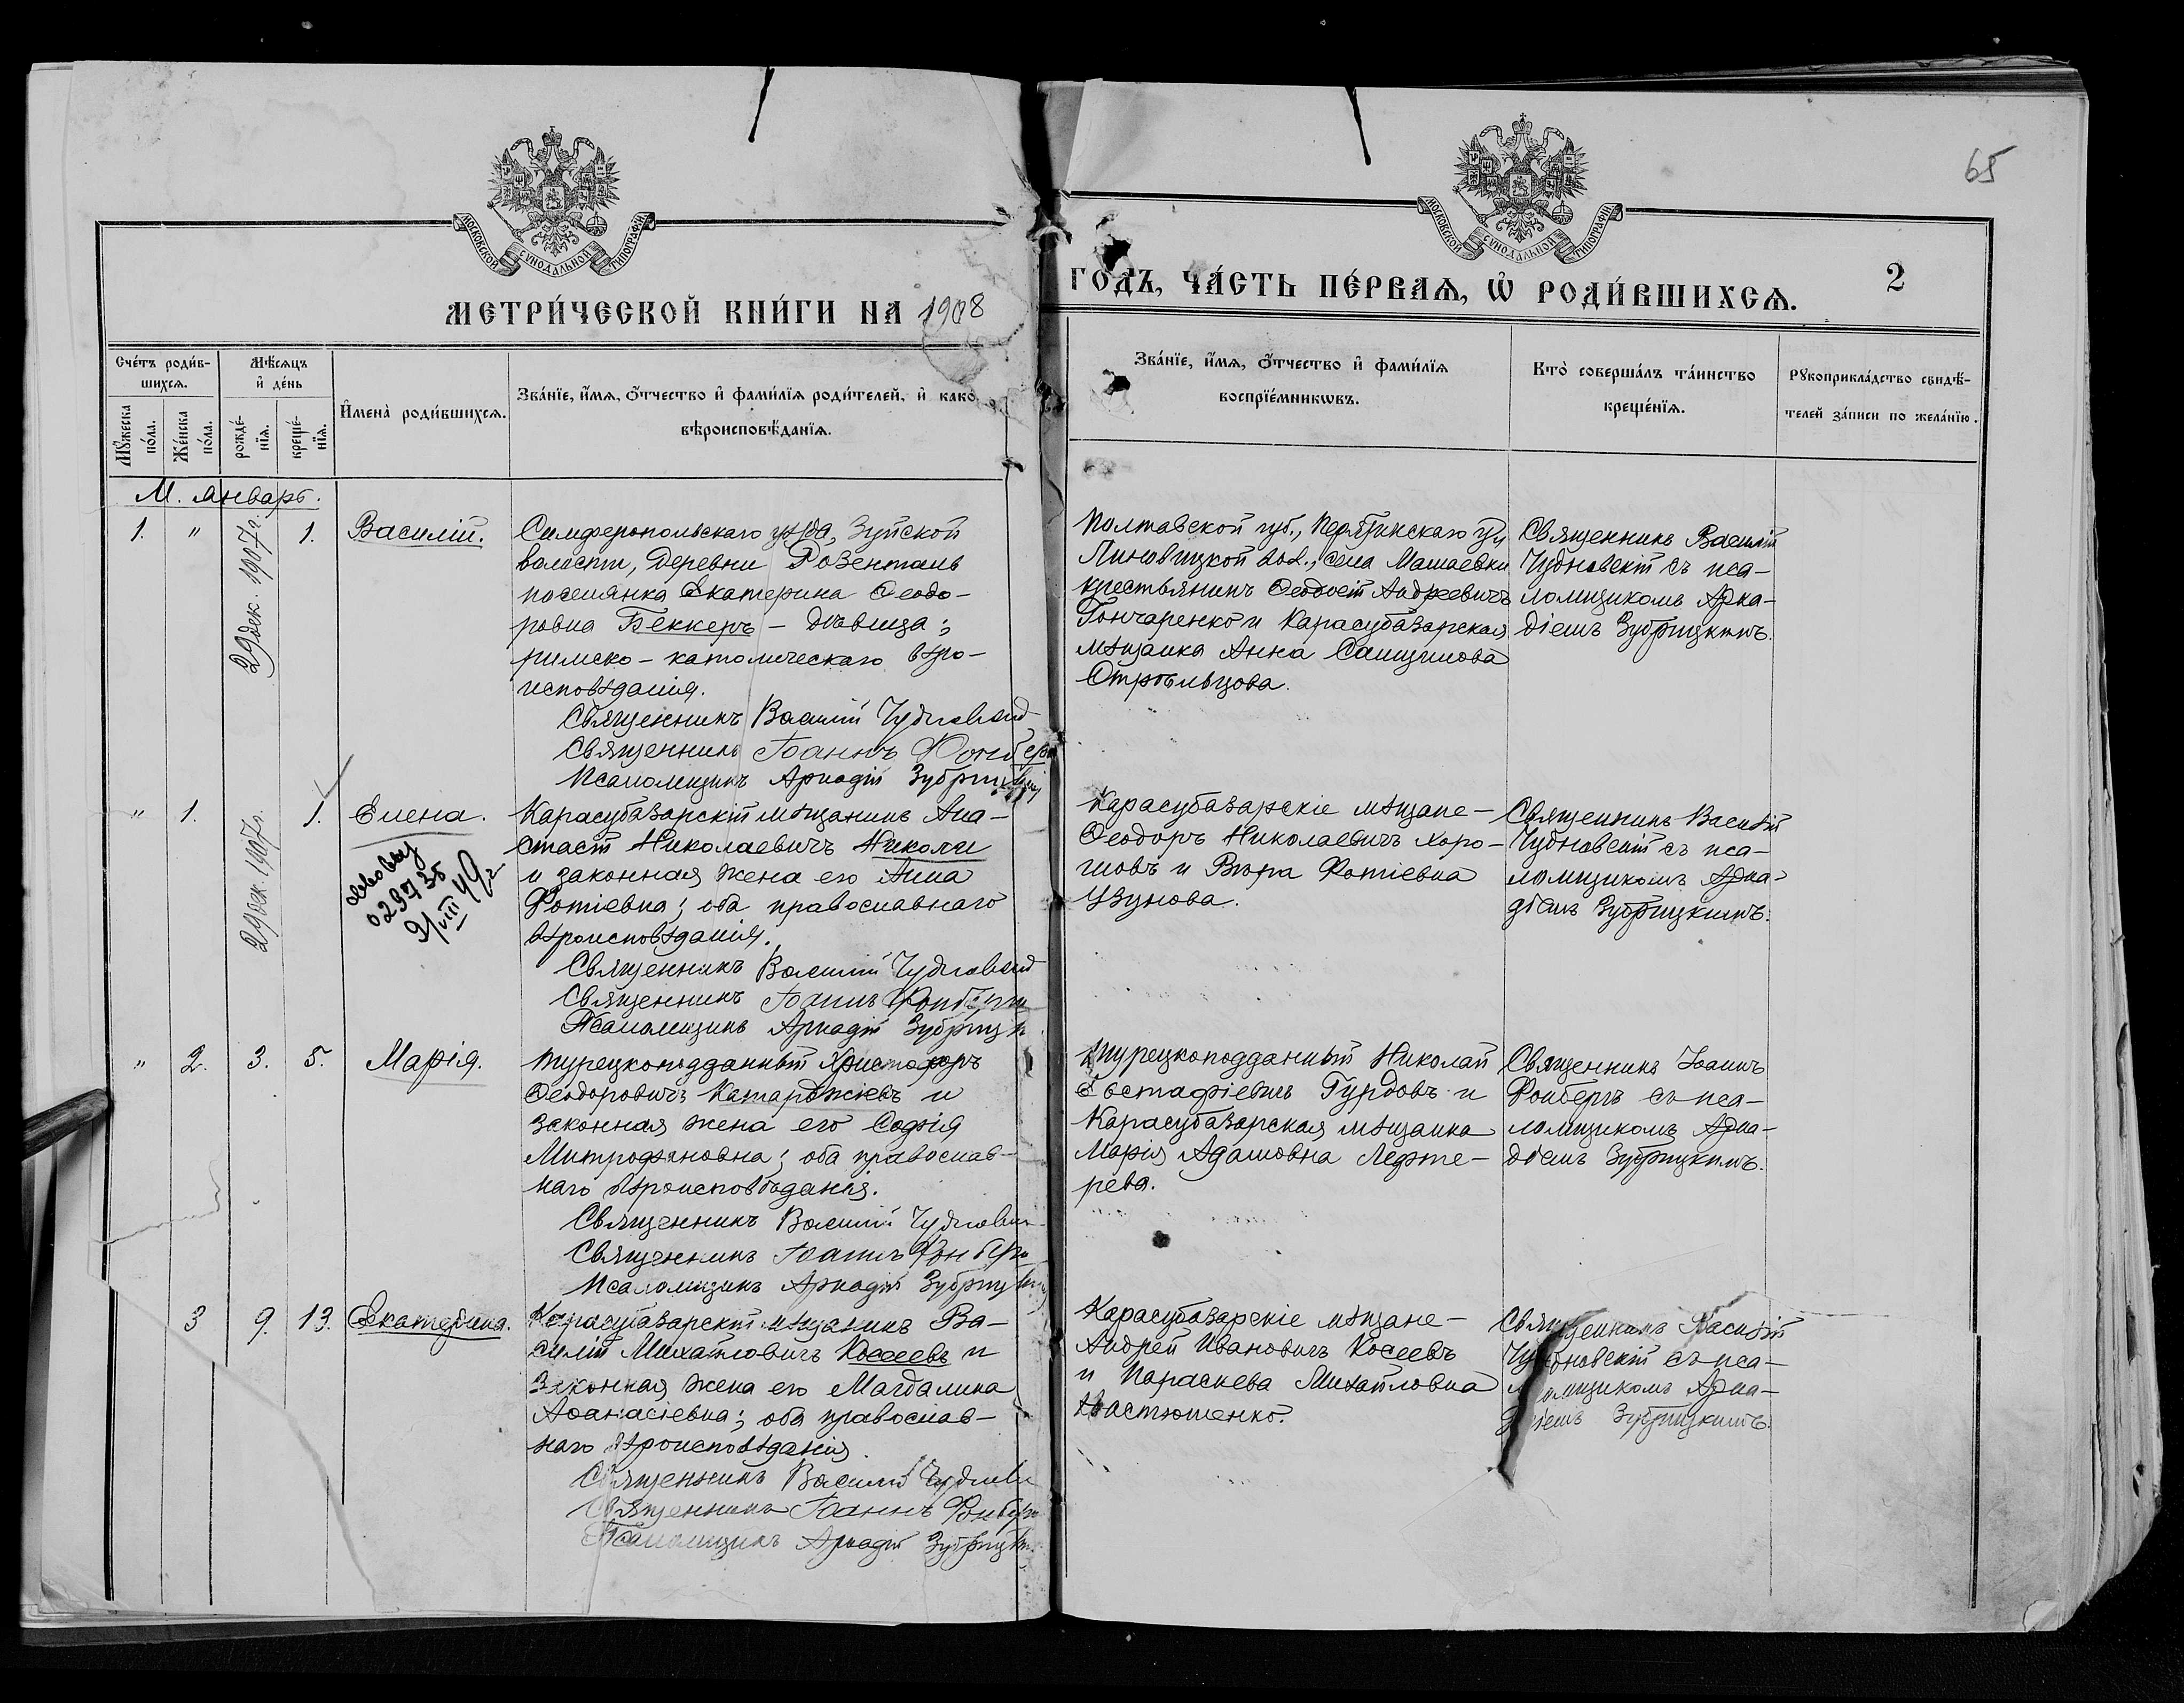 65
МОСКОВСКОЙ СѴНОДАЛЬНОЙ ТИПОГРАФІИ
МОСКОВСКОЙ СѴНОДАЛЬНОЙ ТИПОГРАФІИ
МЕТРИ́ЧЕСКОЙ КНИ́ГИ НА 1908
ГОДЪ, ЧА́СТЬ ПЕ́РВАѦ, Ѡ҆ РОДИ́ВШИХСѦ.
2
Сче́тъ роди́в-
шихсѧ.
Мꙋ́жеска по́ла.
Же́нска по́ла.
Мѣ́сѧцъ
и҆ де́нь
рожде́-
нїѧ.
креще́-
нїѧ.
И҆мена̀ роди́вшихсѧ.
Зва́нїе, и҆́мѧ, ѻ҆́тчество и҆ фами́лїѧ роди́телей, и҆ како́
вѣроисповѣ́данїѧ.
Зва́нїе, и҆́мѧ, ѻ҆́тчество и҆ фами́лїѧ
воспрїе́мникѡвъ.
Кто̀ соверша́лъ та́инство
креще́нїѧ.
Рꙋкоприкла́дство свидѣ́-
телей за́писи по жела́нїю.
М. январь.
1. " 29 дек. 1907 г. 1. Василій.
Симферопольскаго уѣзда, Зуйской
волости, деревни Розенталь
поселянка Екатерина Ѳеодо-
ровна Беккеръ – дѣвица;
римско-католическаго вѣро-
исповѣданія.
Священникъ Василій Чудновскій
Священникъ Іоаннъ Фонберг
Псаломщикъ Аркадій Зубрицкій
Полтавской губ., Пирятинскаго у.,
вол., села
крестьянинъ Ѳеодосій Андреевичъ
Гончаренко и Карасубазарская
мѣщанка Анна
Стрѣльцова.
Священникъ Василій
Чудновскій съ пса-
ломщикомъ Арка-
діемъ Зубрицкимъ.
" 1. 29 дек. 1907 г. 1. Елена.
029735
9/VIII 49 г
Карасубазарскій мѣщанинъ Ана-
стасій Николаевичъ Николи
и законная жена его Анна
Фотіевна; оба православнаго
вѣроисповѣданія.
Священникъ Василій Чудновскій
Священникъ Іоаннъ Фонберг
Псаломщикъ Аркадій Зубрицк
Карасубазарскіе мѣщане –
Ѳеодоръ Николаевичъ Хоро-
шовъ и Вѣра Фотіевна
Узунова.
Священникъ Василій
Чудновскій съ пса-
ломщикомъ Арка-
діемъ Зубрицкимъ.
" 2. 3. 5. Марія.
Турецкоподданный Христофоръ
Ѳеодоровичъ Катарджіевъ и
законная жена его Софія
Митрофановна; оба православ-
наго вѣроисповѣданія.
Священникъ Василій Чудновск
Священникъ Іоаннъ Фонберг
Псаломщикъ Аркадій Зубрицкій
Турецкоподданный Николай
Евстафіевичъ Гурдовъ и
Карасубазарская мѣщанка
Марія Адамовна Лефте-
рева.
Священникъ Іоаннъ
Фонбергъ съ пса-
ломщикомъ Арка-
діемъ Зубрицкимъ.
3 9. 13. Екатерина.
Карасубазарскій мѣщанинъ Ва-
силій Михайловичъ Косеевъ и
законная жена его Магдалина
Аѳанасіевна; оба православ-
наго вѣроисповѣданія.
Священникъ Василій Чудновск
Священникъ Іоаннъ Фонберг
Псаломщикъ Аркадій Зубрицк
Карасубазарскіе мѣщане –
Андрей Ивановичъ Косеевъ
и Параскева Михайловна
Хвастюшенко.
Священникъ Василій
Чудновскій съ пса-
ломщикомъ Арка-
діемъ Зубрицкимъ.